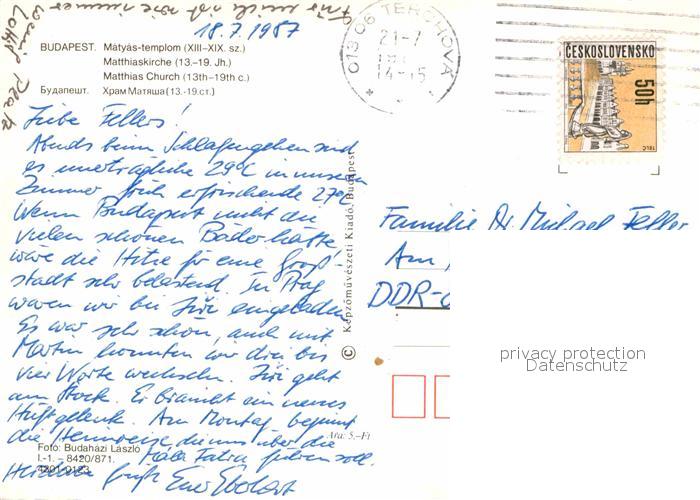 18.7.1987
BUDAPEST. Mátyás-templom (XIII–XIX. sz.)
Matthiaskirche (13.–19. Jh.)
Matthias Church (13th–19th c.)
Будапешт. Храм Матяша (13.-19.ст.)
Liebe Fellers!
Abends beim Schlafengehen sind
es unerträgliche 29°C in unserem
Zimmer, früh erfrischende 27°C
Wenn Budapest nicht die
vielen schönen Bäder hätte,
wäre die Hitze für eine Groß-
stadt sehr belastend. In Prag
waren wir bei Jiři eingeladen
Es war sehr schön, auch mit
Martin konnten wir drei bis
vier Worte wechseln. Jiři geht
am Stock. Er braucht ein neues
Hüftgelenk. Am Montag beginnt
die Heimreise die uns über die
Mala Fatra führen soll.
Herzliche Grüße Euer
Foto: Budaházi László
I.-1. – 8420/871.
4201 0123
Ára: 5.–Ft
© Képzőművészeti Kiadó, Budapest
013 06 TERCHOVÁ
21-7
14-15
ČESKOSLOVENSKO
50h
TELČ
Familie Dr. Michael Feller
Am
DDR-
privacy protection
Datenschutz